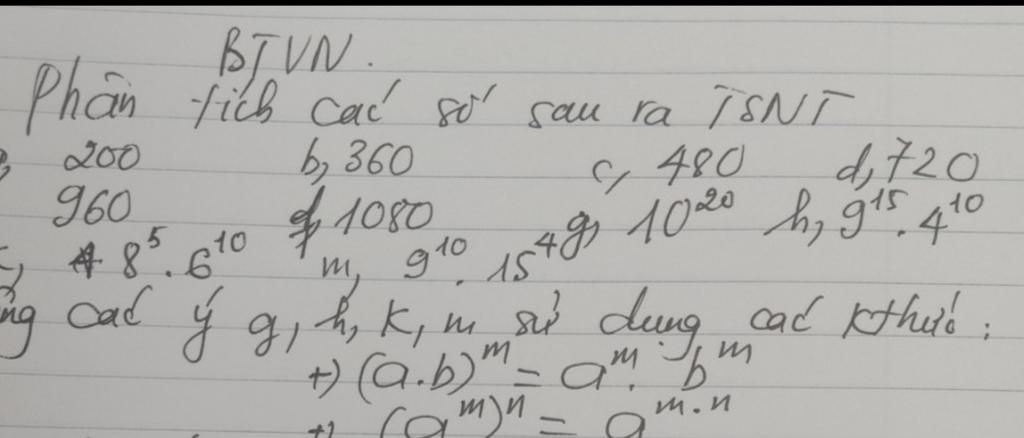 BTVN.
Phân tích các số sau ra TSNT
200 b, 360 c, 480 d, 720
960 f, 1080 g, 10²⁰ h, 9¹⁵ . 4¹⁰
8⁵ . 6¹⁰ m, 9¹⁰ . 15⁴
các ý g, h, k, m sử dụng các kthức :
+) (a.b)ᵐ = aᵐ . bᵐ
+) (aᵐ)ⁿ = aᵐ·ⁿ